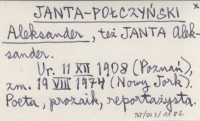 JANTA-POŁCZYŃSKI
Aleksander, też JANTA Alek-
sander.
Ur. 11 XII 1908 (Poznań),
zm. 19 VIII 1974 (Nowy Jork).
Poeta, prozaik, reportażysta.